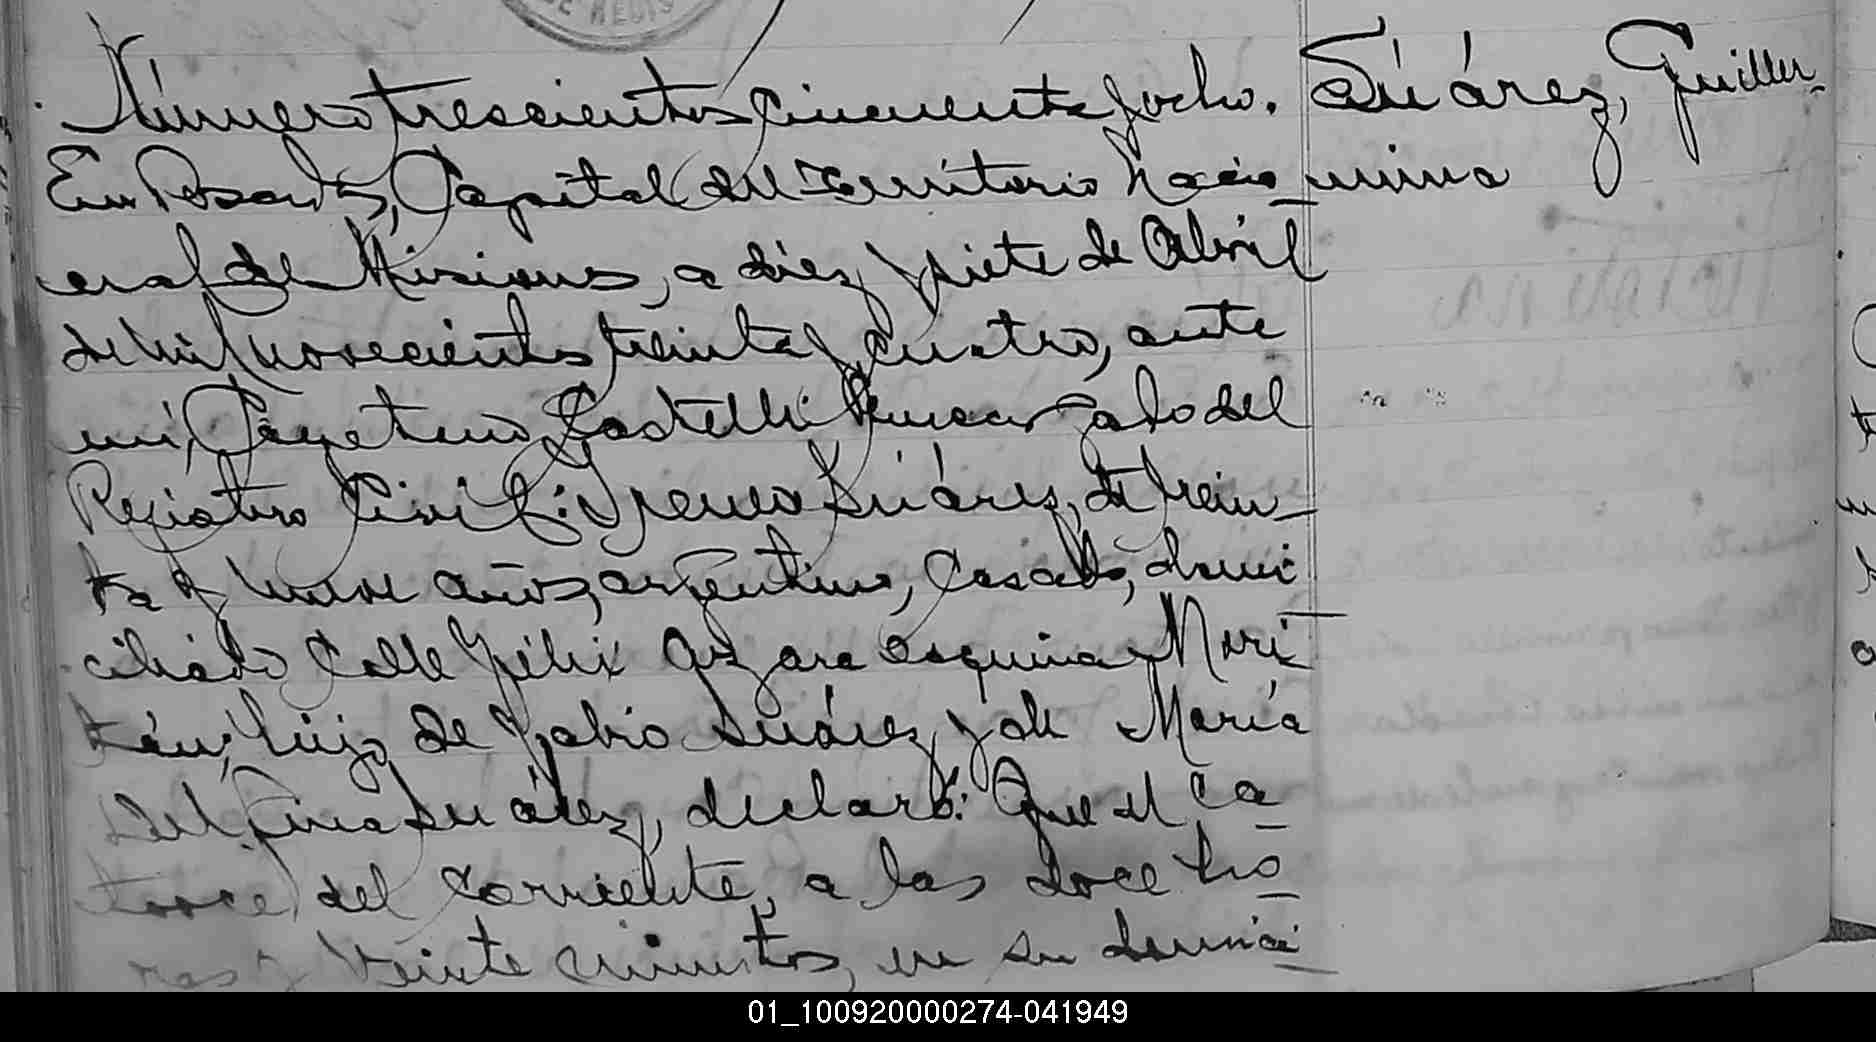 DE REGIS
Número trescientos cincuenta y ocho.
Suárez, Guiller-
En Posadas, Capital del Territorio Nacio
mina
nal de Misiones, a diez y siete de Abril
de mil novecientos treinta y cuatro, ante
mí, Cayetano Castelli Encargado del
Registro Civil: Ireneo Suárez, de trein-
ta y nueve años, argentino, casado, domi
ciliado calle Félix Azara esquina
hijo de Fabio Suárez y de María
Delfina Suárez, declaró: Que el ca-
torce del corriente, a las doce ho-
ras y veinte minutos, en su domici-
01_100920000274-041949